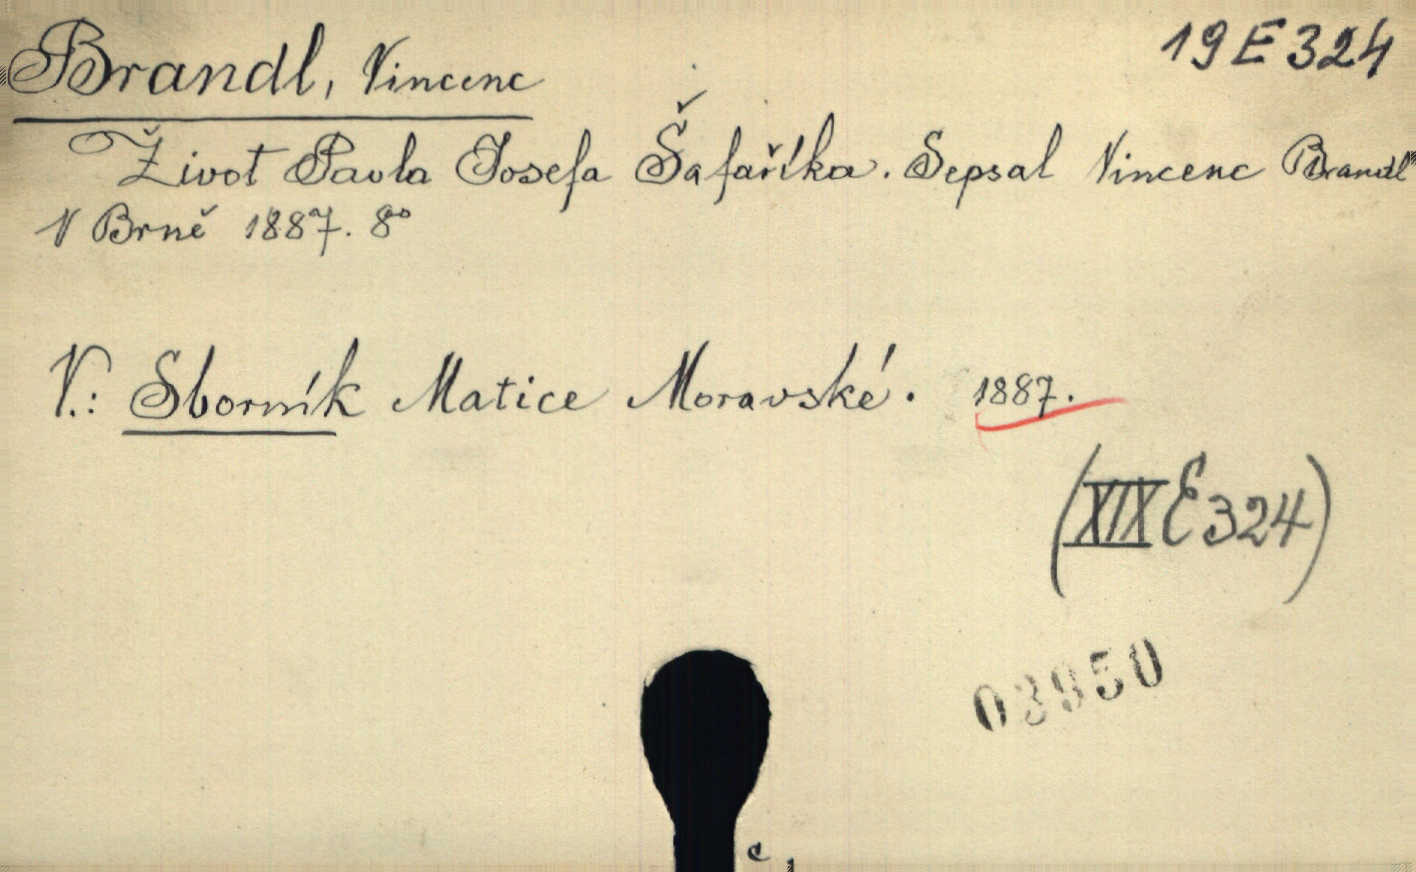 19 E 324
Brandl, Vincenc
Život Pavla Josefa Šafaříka. Sepsal Vincenc Brandl
V Brně 1887. 8°
V.: Sborník Matice Moravské. 1887.
(XIX E 324)
03950